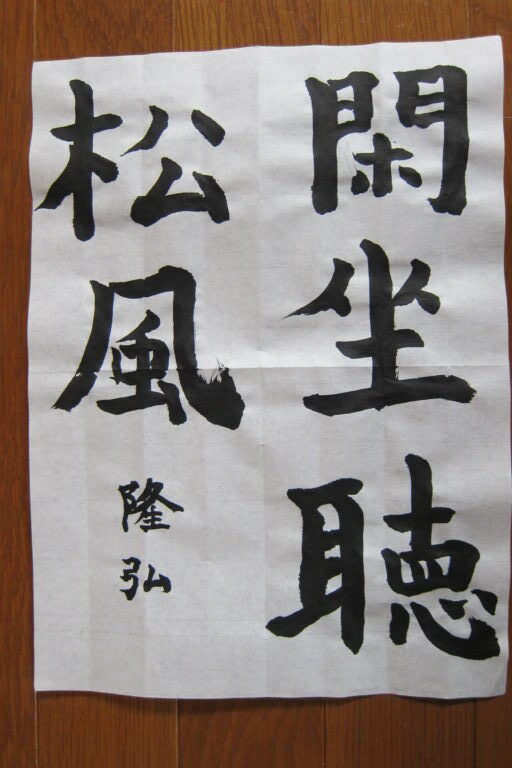 閑坐聴
松風
隆弘